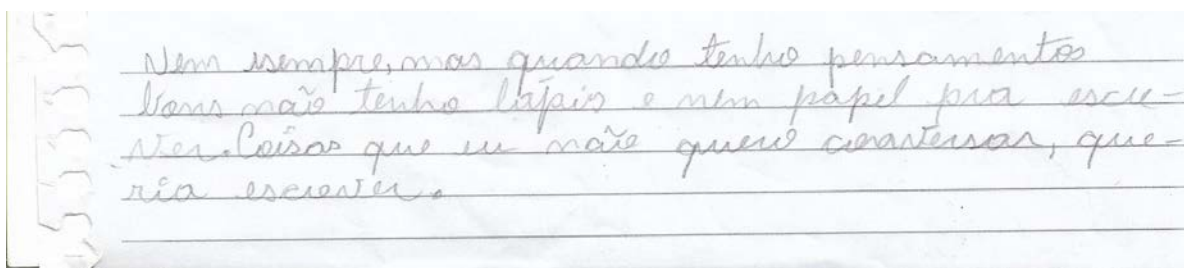 Nem sempre, mas quando tenho pensamentos
bons não tenho lápais e nem papel pra escre-
ver. Coisas que eu não quero conversar, que-
ria escrever.